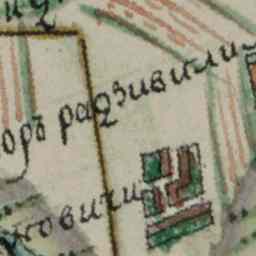 оръ радзивили
ковичи